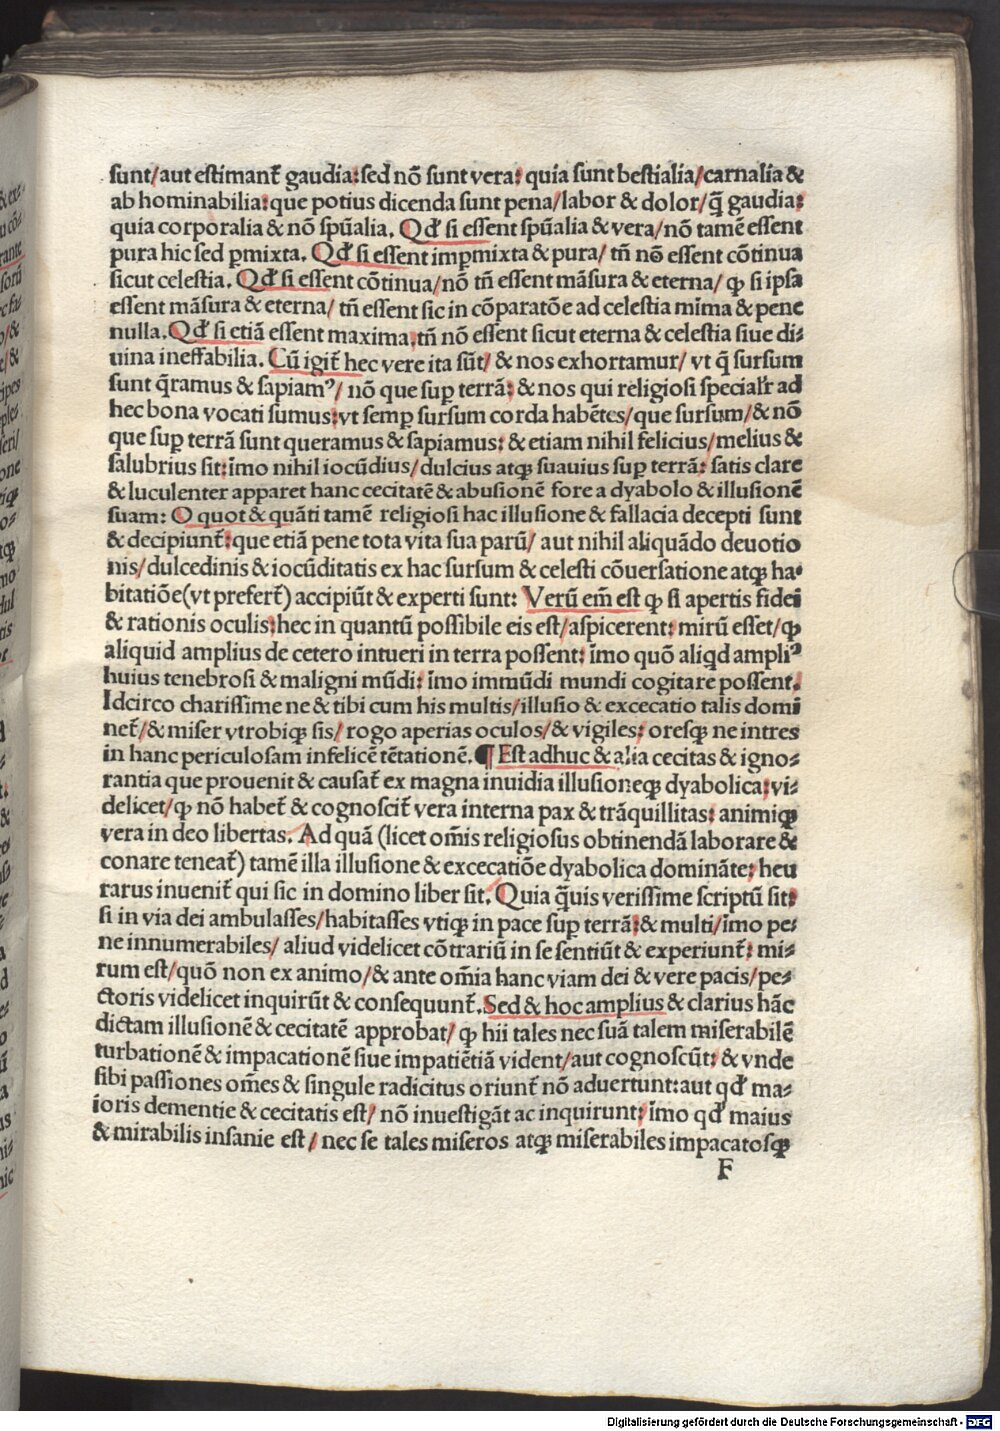 sunt/aut estimant̃ gaudia: sed nõ sunt vera: quia sunt bestialia/carnalia &
ab hominabilia: que potius dicenda sunt pena/labor & dolor/q̃ gaudia:
quia corporalia & nõ spũalia. Qđ si essent spũalia & vera/nõ tamẽ essent
pura hic sed ꝑmixta. Qđ si essent imꝑmixta & pura/ tñ nõ essent cõtinua
sicut celestia. Qđ si essent cõtinua/nõ tñ essent mãsura & eterna/ ꝙ si ipsa
essent mãsura & eterna/ tñ essent sic in cõparatõe ad celestia mĩma & pene
nulla. Qđ si etiã essent maxima: tñ nõ essent sicut eterna & celestia siue di⸗
uina ineffabilia. Cũ igit̃ hec vere ita sũt/ & nos exhortamur/ vt q̃ sursum
sunt q̃ramus & sapiamꝰ/ nõ que suꝑ terrã: & nos qui religiosi speciaƚr ad
hec bona vocati sumus: vt semꝑ sursum corda habẽtes/que sursum/& nõ
que suꝑ terrã sunt queramus & sapiamus: & etiam nihil felicius/melius &
salubrius sit: ĩmo nihil iocũdius/dulcius atqꝫ suauius suꝑ terrã: satis clare
& luculenter apparet hanc cecitatẽ & abusionẽ fore a dyabolo & illusionẽ
suam: O quot & quãti tamẽ religiosi hac illusione & fallacia decepti sunt
& decipiunt̃: que etiã pene tota vita sua parũ/ aut nihil aliquãdo deuotio
nis/dulcedinis & iocũditatis ex hac sursum & celesti cõuersatione atqꝫ ha⸗
bitatiõe(vt prefert̃) accipiũt & experti sunt: Verũ em̃ est ꝙ si apertis fidei
& rationis oculis: hec in quantũ possibile eis est/aspicerent: mirũ esset/ꝙ
aliquid amplius de cetero intueri in terra possent: ĩmo quõ aliqd ampliꝰ
huius tenebrosi & maligni mũdi: ĩmo immũdi mundi cogitare possent.
Idcirco charissime ne & tibi cum his multis/illusio & excecatio talis domi
net̃/& miser vtrobiqꝫ sis/ rogo aperias oculos/& vigiles: oresqꝫ ne intres
in hanc periculosam infelicẽ tẽtationẽ. ¶ Est adhuc & alia cecitas & igno⸗
rantia que prouenit & causat̃ ex magna inuidia illusioneqꝫ dyabolica: vi⸗
delicet/ꝙ nõ habet̃ & cognoscit̃ vera interna pax & trãquillitas: animiqꝫ
vera in deo libertas. Ad quã (licet om̃is religiosus obtinendã laborare &
conare teneat̃) tamẽ illa illusione & excecatiõe dyabolica dominãte: heu
rarus inuenit̃ qui sic in domino liber sit. Quia q̃uis verissime scriptũ sit:
si in via dei ambulasses/habitasses vtiqꝫ in pace suꝑ terrã: & multi/ĩmo pe⸗
ne innumerabiles/ aliud videlicet cõtrariũ in se sentiũt & experiunt̃: mi⸗
rum est/quõ non ex animo/& ante om̃ia hanc viam dei & vere pacis/pe⸗
ctoris videlicet inquirũt & consequunt̃. Sed & hoc amplius & clarius hãc
dictam illusionẽ & cecitatẽ approbat/ ꝙ hii tales nec suã talem miserabilẽ
turbationẽ & impacationẽ siue impatiẽtiã vident/aut cognoscũt: & vnde
sibi passiones om̃es & singule radicitus oriunt̃ nõ aduertunt: aut qđ ma⸗
ioris dementie & cecitatis est/ nõ inuestigãt ac inquirunt: ĩmo qđ maius
& mirabilis insanie est/ nec se tales miseros atqꝫ miserabiles impacatosqꝫ
F
Digitalisierung gefördert durch die Deutsche Forschungsgemeinschaft - DFG